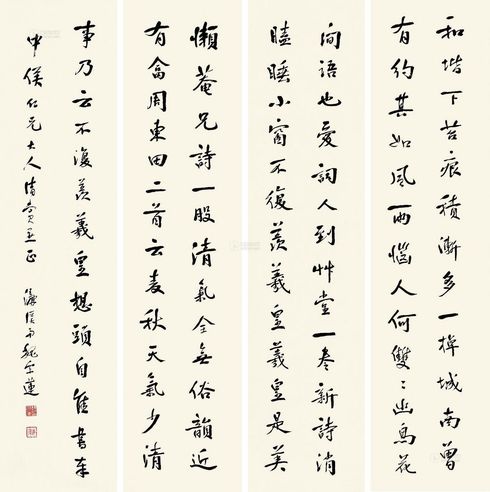 和堦下苔痕積漸多一棹城南曾
有約其如風雨惱人何雙〻幽鳥花
間語也愛詞人到艸堂一卷新詩消
瞌睡小窗不復羨羲皇羲皇是美
事乃云不復羨羲皇想頭自雋書奉
懶菴兄詩一股清氣全無俗韻近
有畣周東田二首云麦秋天氣少清
仁兄大人清賞